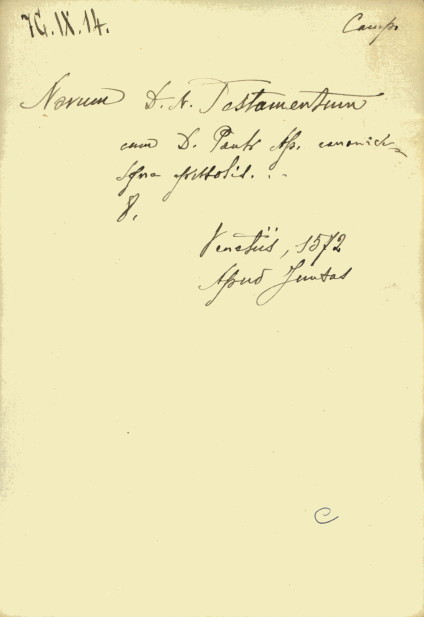 7G.IX.14.
Camp.
Novum D. N. Testamentum
cum D. Pauli Ap. canonicis
epistolis. . .
8.
Venetiis, 1572
Apud Juntas
C